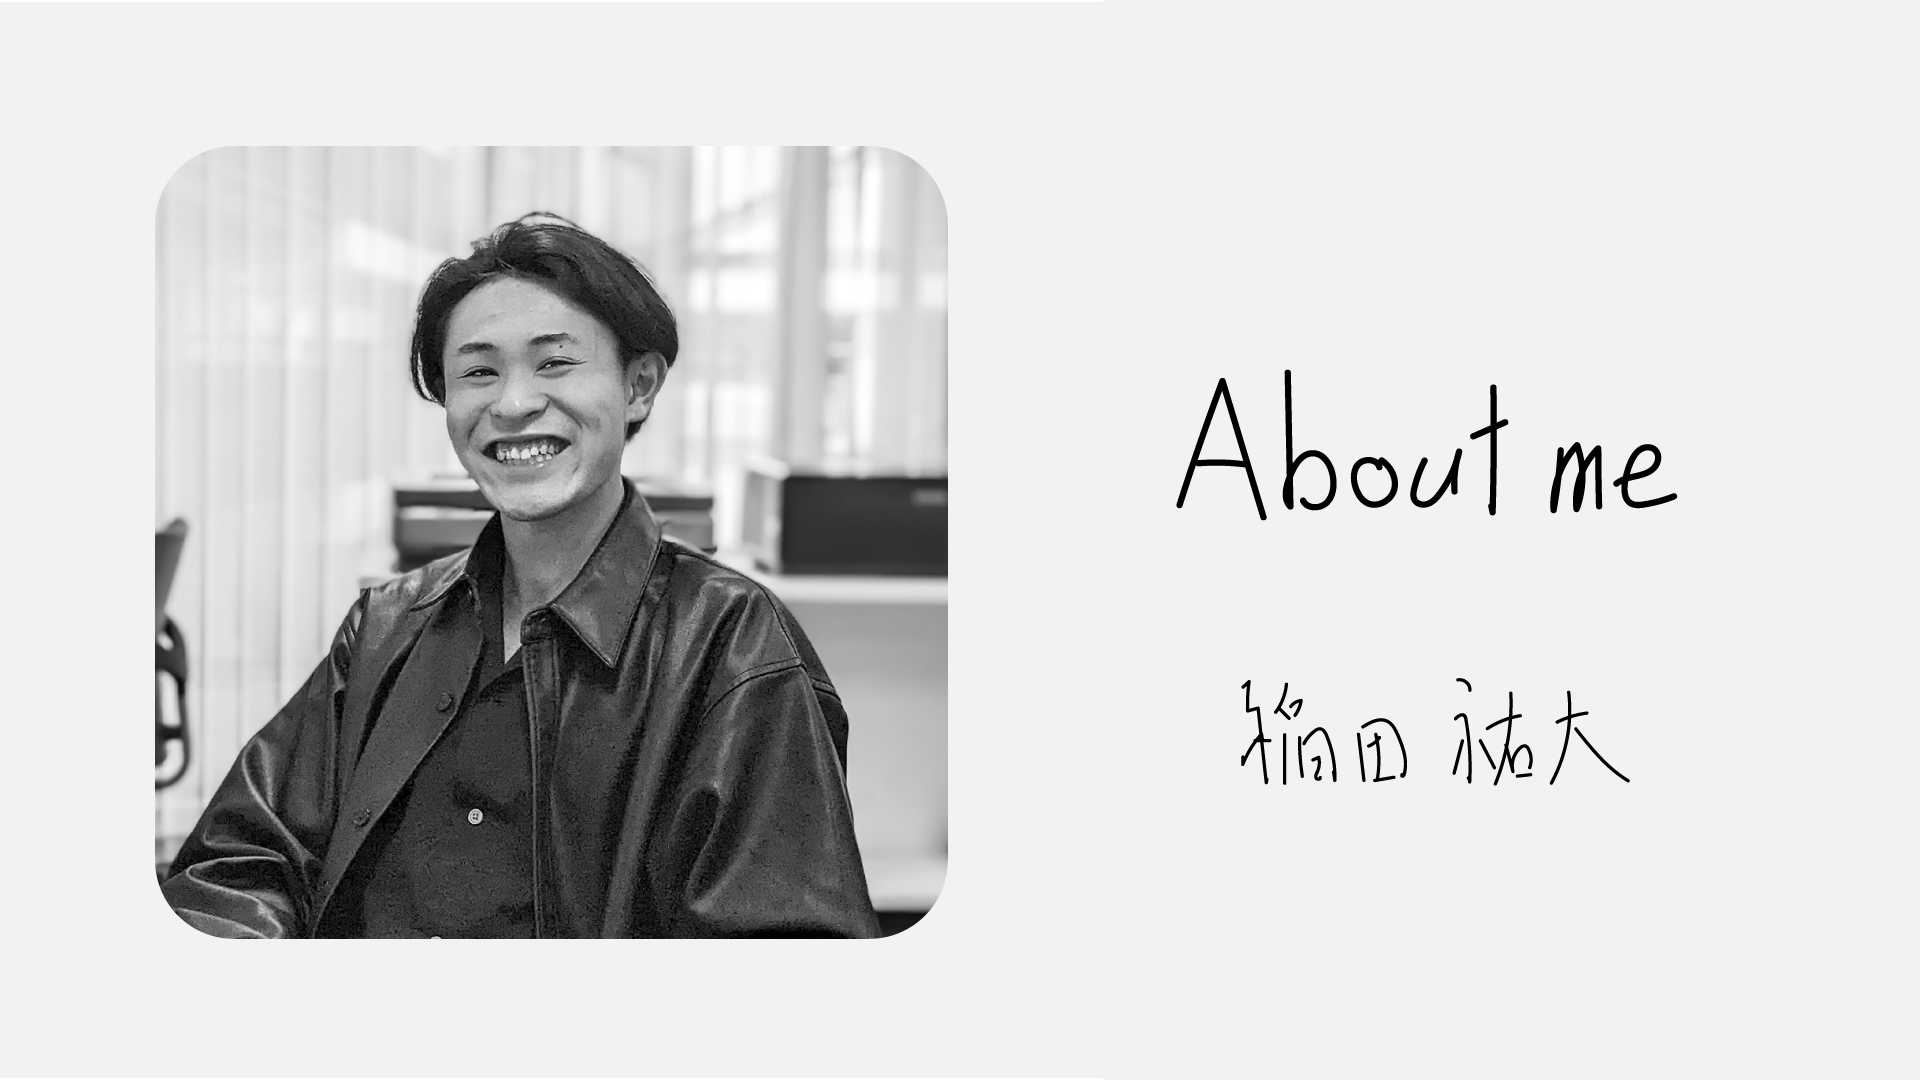 About me
稲田 祐大